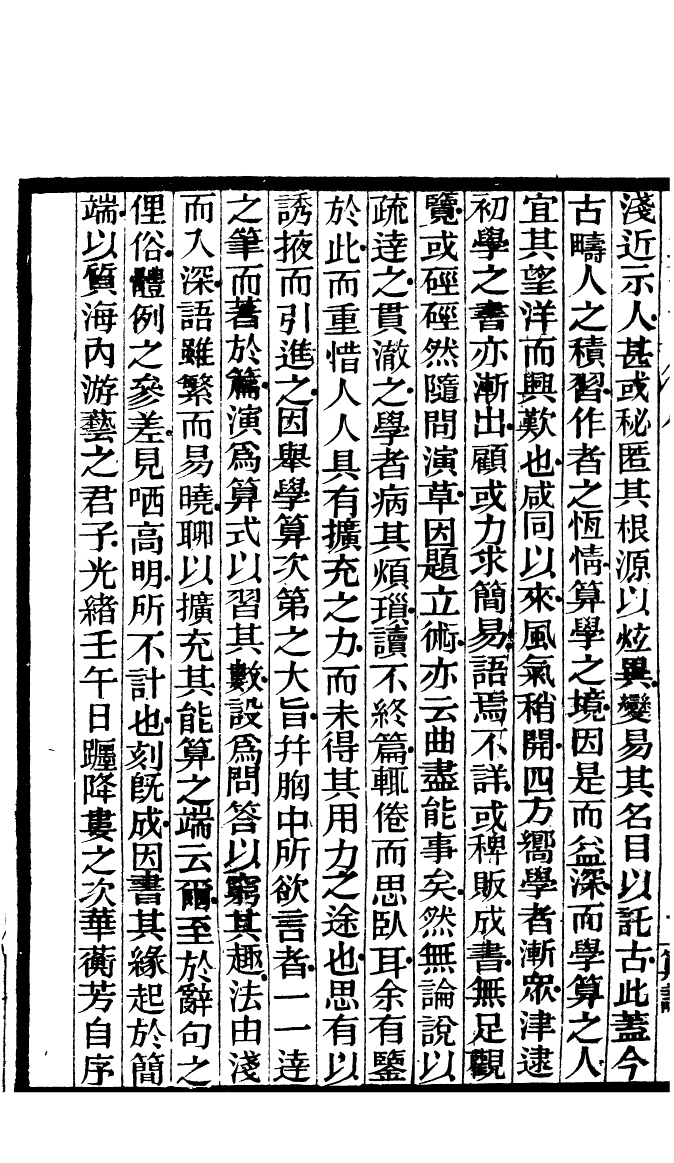 淺近示人甚或秘匿其根源以炫異變易其名目以託古此蓋今
古疇人之積習作者之恆情算學之境因是而益深而學算之人
宜其望洋而興歎也咸同以來風氣稍開四方嚮學者漸眾津逮
初學之書亦漸出顧或力求簡易語焉不詳或稗販成書無足觀
覽或硜硜然隨問演草因題立術亦云曲盡能事矣然無論說以
疏達之貫澈之學者病其煩瑣讀不終篇輒倦而思臥耳余有鑒
於此而重惜人人具有擴充之力而未得其用力之途也思有以
誘掖而引進之因舉學算次第之大旨幷胸中所欲言者一一達
之筆而著於篇演為算式以習其數設為問答以窮其趣法由淺
而入深語雖繁而易曉聊以擴充其能算之端云爾至於辭句之
俚俗體例之參差見哂高明所不計也刻既成因書其緣起於簡
端以質海內游藝之君子光緒壬午日躔降婁之次華蘅芳自序